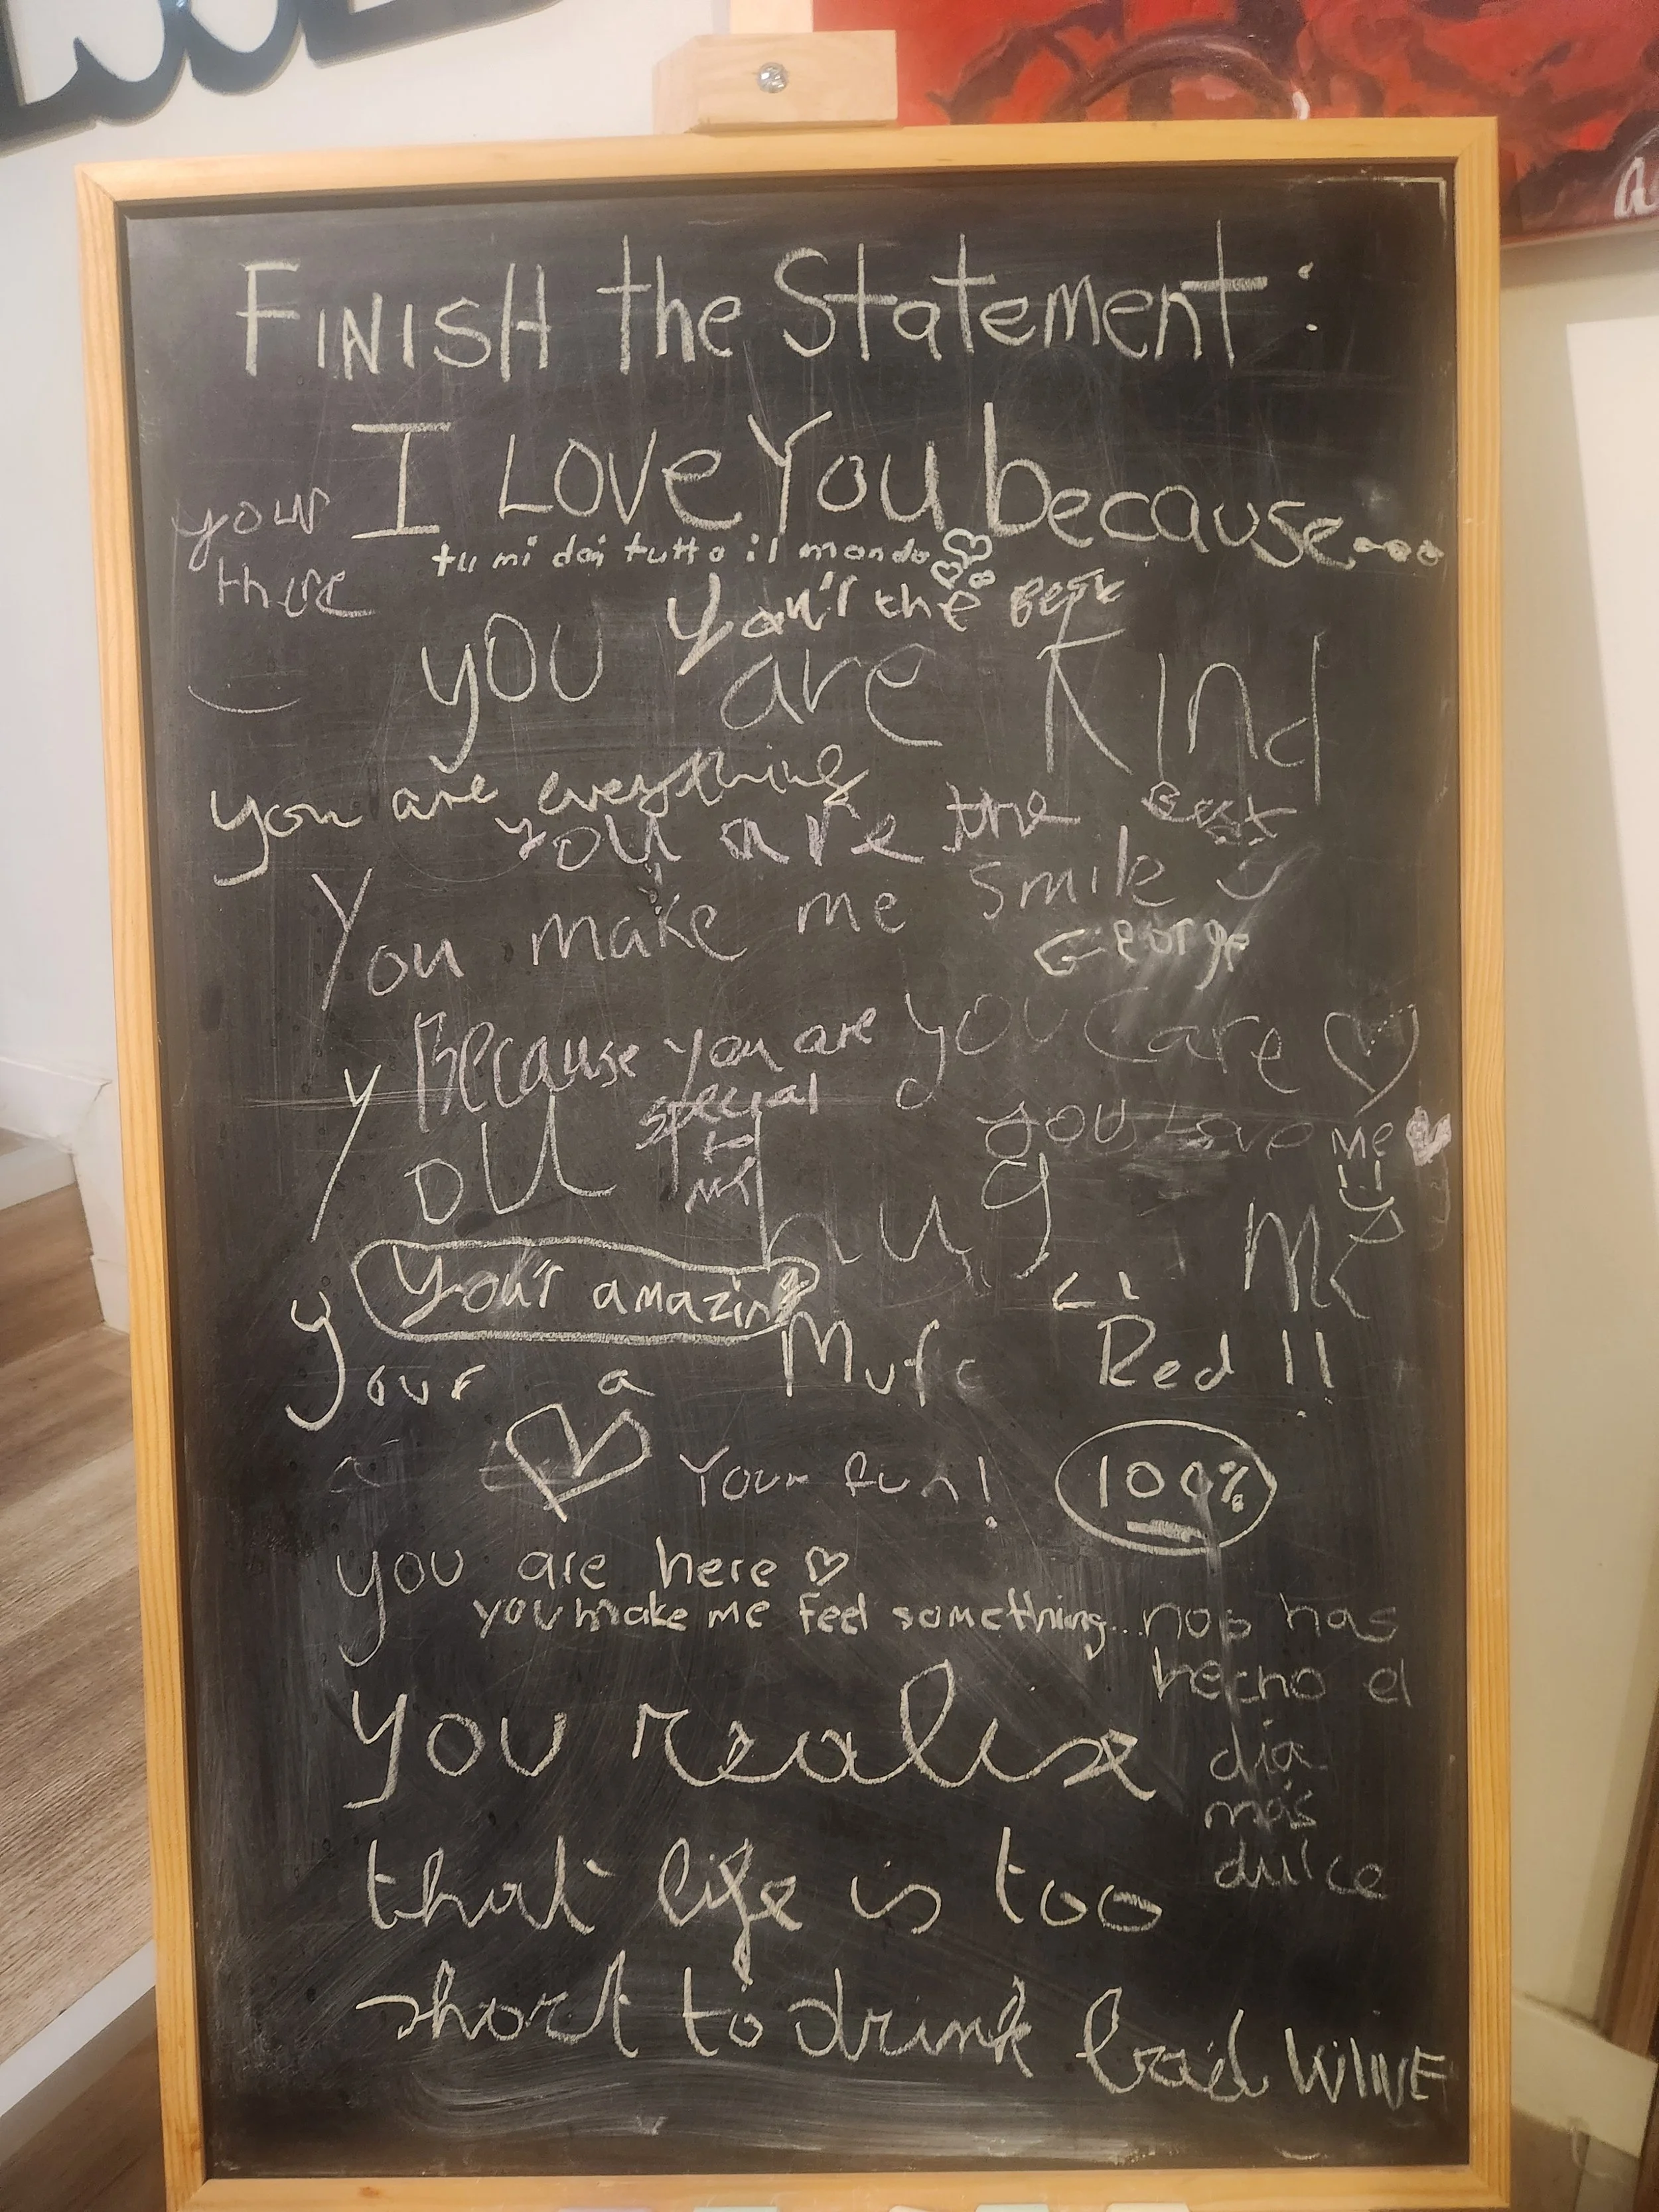 FINISH the Statement:
I Love You because....
your
there
tu mi dai tutto il mondo
You'r the Best
you are Kind
you are everything
you are the Best
You make me smile
George
Because you are
special
to
me
you care
you Love me
You hug me
Your amazing
your a Mufc Red !!
Your fun!
100%
you are here
you make me feel something...
nos has
hecho el
día
más
dulce
you realise
that life is too
short to drink bad WINE